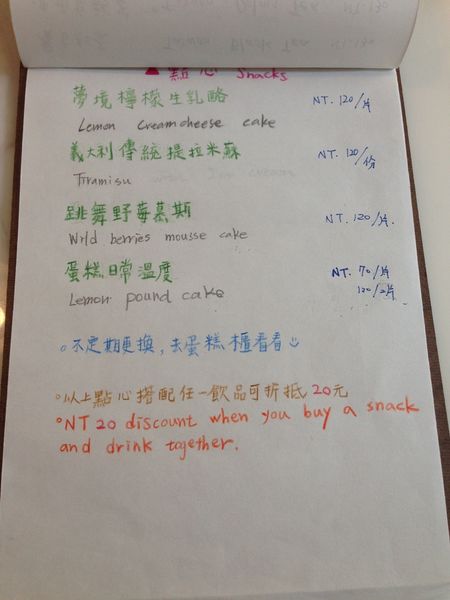 ▲ 點心 Snacks
夢境檸檬生乳酪 NT. 120/片
Lemon Creamcheese cake
義大利傳統提拉米蘇 NT. 120/份
Tiramisu
跳舞野莓慕斯 NT. 120/片.
Wild berries mousse cake
蛋糕日常溫度 NT. 70/片
Lemon pound cake 120/2片
。不定期更換,去蛋糕櫃看看
。以上點心搭配任一飲品可折抵20元
°NT 20 discount when you buy a snack
and drink together.